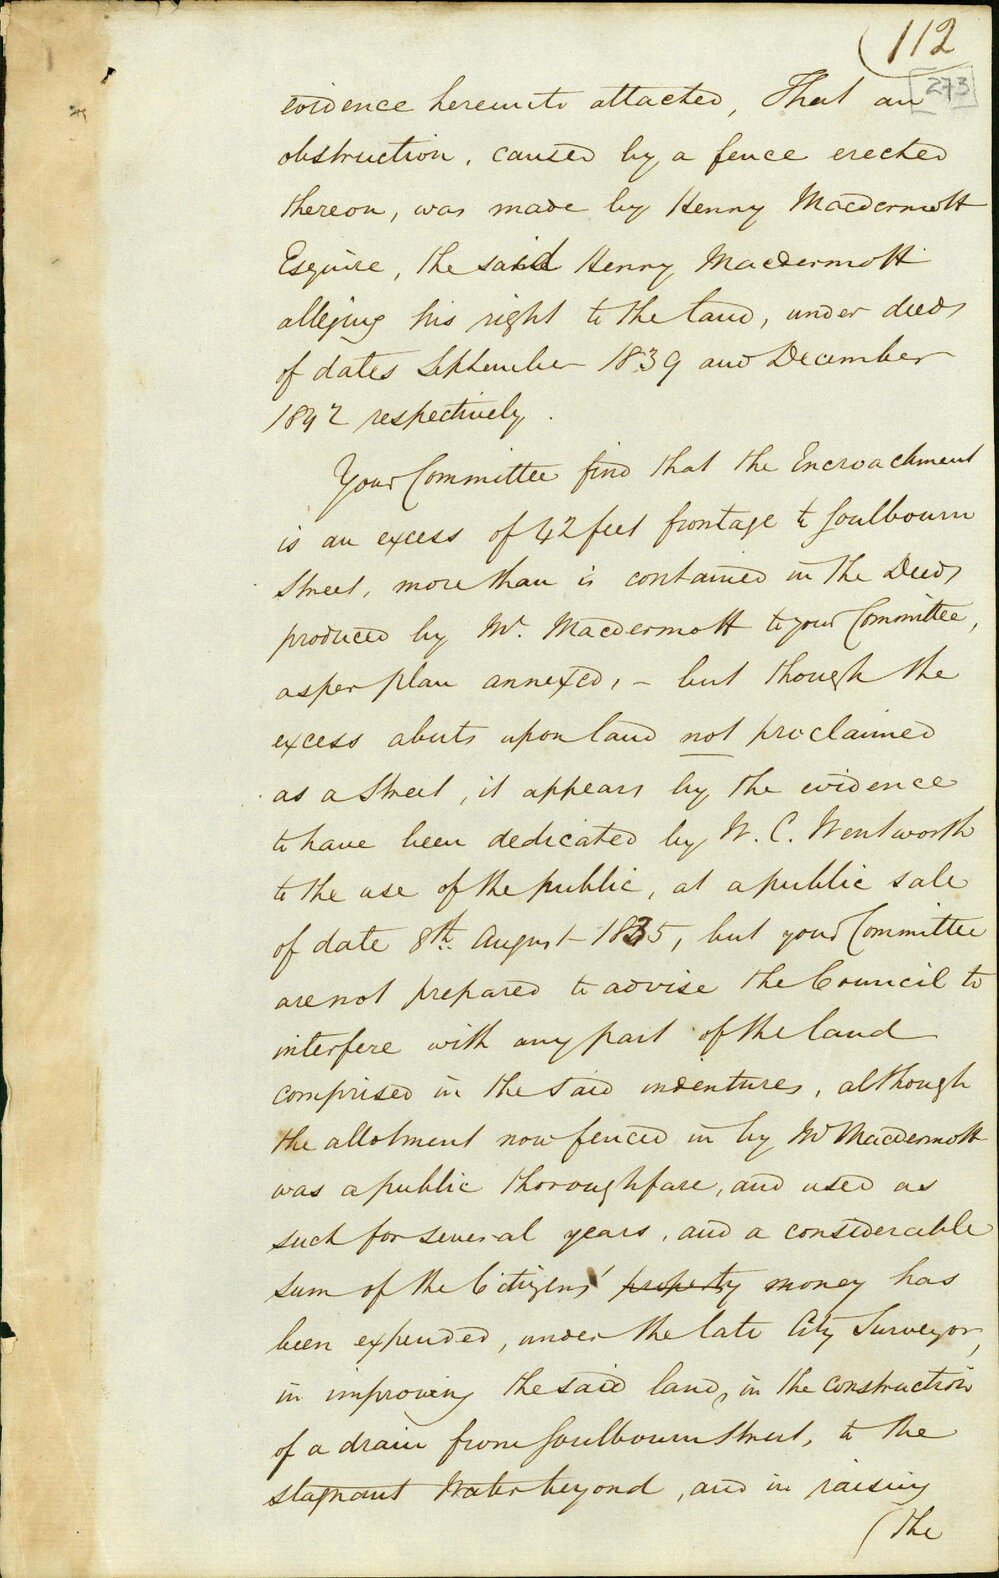 112
273
evidence hereunto attached, That an
obstruction, caused by a fence erected
thereon, was made by Henry Macdermott
Esquire, the said Henry Macdermott
alleging his right to the land, under deeds
of dates September 1839 and December
1842 respectively.
Your Committee find that the Encroachment
is an excess of 42 feet frontage to Goulbourn
Street, more than is contained in the Deeds
produced by Mr. Macdermott to your Committee,
as per plan annexed, – but though the
excess abuts upon land not proclaimed
as a Street, it appears by the evidence
to have been dedicated by W. C. Wentworth
to the use of the public, at a public sale
of date 8th. August 1835, but your Committee
are not prepared to advise the Council to
interfere with any part of the land
comprised in the said indentures, although
the allotment now fenced in by Mr Macdermott
was a public thoroughfare, and used as
such for several years, and a considerable
sum of the Citizens' property money has
been expended, under the late City Surveyor,
in improving the said land, in the construction
of a drain from Goulbourn Street, to the
stagnant Water beyond, and in raising
(the